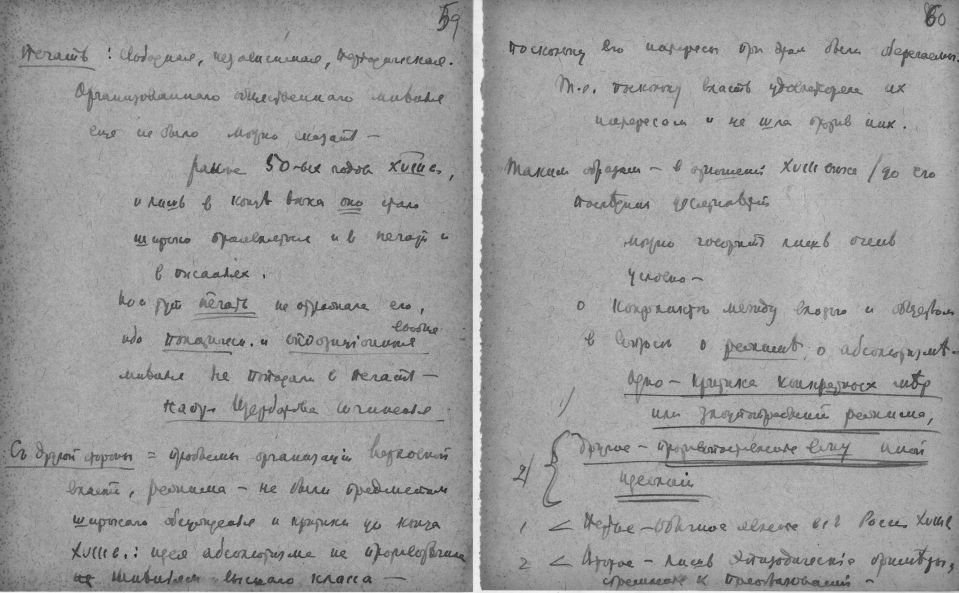 59
Печать : свободная, независимая, периодическая.
Организованнаго общественнаго мнѣнія
еще не было можно сказать —
ранѣе 50-ых годов XVIII в.,
и лишь в концѣ вѣка оно стало
широко проявляться и в печати и
в
Но и тут печать не отражала его,
ибо политическ. и оппозиціонныя вообще
мнѣнія не попадали в печать —
напр. Щербатова сочиненія
Съ другой стороны = проблемы организаціи верховной
власти, режима — не были предметом
широкаго обсужденія и критики до конца
XVIII в.: идея абсолютизма не противорѣчила
высшаго класса —
60
поскольку его интересы при этом были оберегаемы.
Т.е. поскольку власть удовлетворяла их
интересам и не шла против них.
Таким образом — в отношеніи XVIII вѣка / до его
последних десятилѣтій
можно говорить лишь очень
условно —
о конфликтѣ между властью и обществом
в вопросѣ о режимѣ, о абсолютизмѣ —
1/ Одно — критика конкретных мѣр
или злоупотребленій режима,
2/ Другое — противопоставленіе ему иной
идеологіи
1 < Первое — обычное явленіе всей Россіи XVIII в
2 < Второе — лишь эпизодическіе примѣры,
стремленіе к преобразованіям —